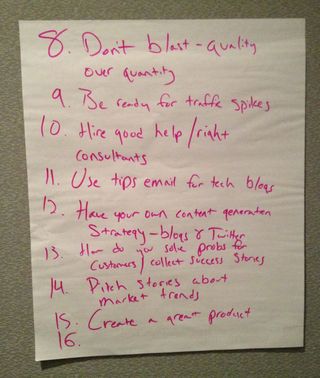 8. Don't blast - quality
over quantity
9. Be ready for traffic spikes
10. Hire good help/right
consultants
11. Use tips email for tech blogs
12. Have your own content generation
Strategy - blogs & Twitter
13. How do you solve probs for
customers/collect success stories
14. Pitch stories about
market trends
15. Create a great product
16.